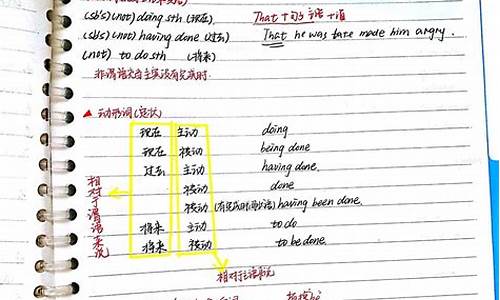 (sb's)(not) doing sth (现在)
That + 句子 主语 + 谓
(sb's)(not) having done (过去)
That he was late made him angry.
(not) to do sth (将来)
非谓语充当主语没有完成时.
▲ 动形词(定状)
现在 主动 doing
现在 被动 being done
过去 主动 having done.
被动 done
被动 (有完成时间状语) having been done.
将来 主动 to do
将来 被动 to be done.
相对于谓语来说
相对主语来说